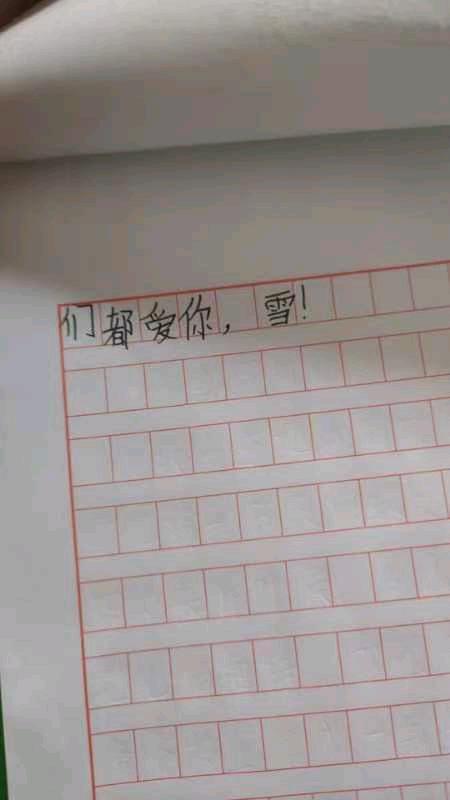 们都爱你，雪！